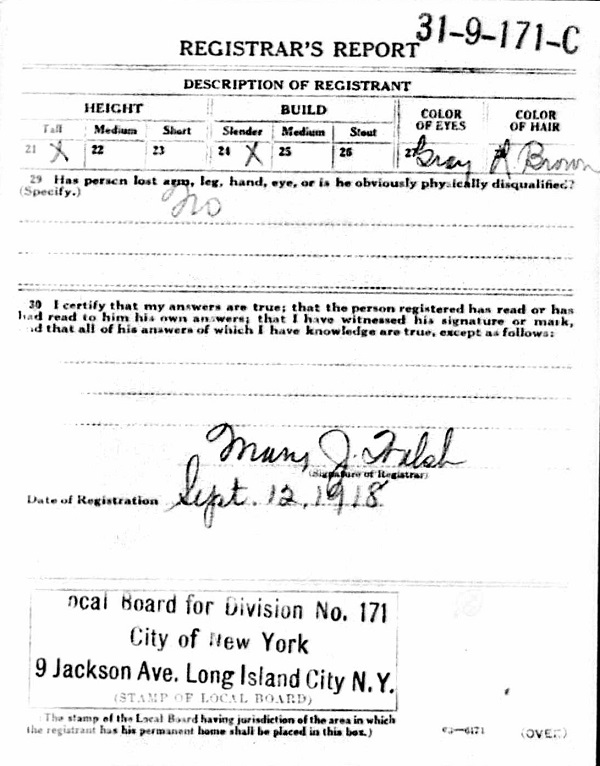 31-9-171-C
REGISTRAR'S REPORT
DESCRIPTION OF REGISTRANT
HEIGHT BUILD COLOR OF EYES COLOR OF HAIR
Tall Medium Short Slender Medium Stout
21 X 22 23 24 X 25 26 27 Gray Brown
29 Has person lost arm, leg, hand, eye, or is he obviously physically disqualified?
(Specify.) No
30 I certify that my answers are true; that the person registered has read or has
had read to him his own answers; that I have witnessed his signature or mark,
and that all of his answers of which I have knowledge are true, except as follows:
Mary J. Walsh
(Signature of Registrar)
Date of Registration Sept. 12, 1918
ocal Board for Division No. 171
City of New York
9 Jackson Ave. Long Island City N.Y.
(STAMP OF LOCAL BOARD)
(The stamp of the Local Board having jurisdiction of the area in which
the registrant has his permanent home shall be placed in this box.)
03—6171 (OVER)